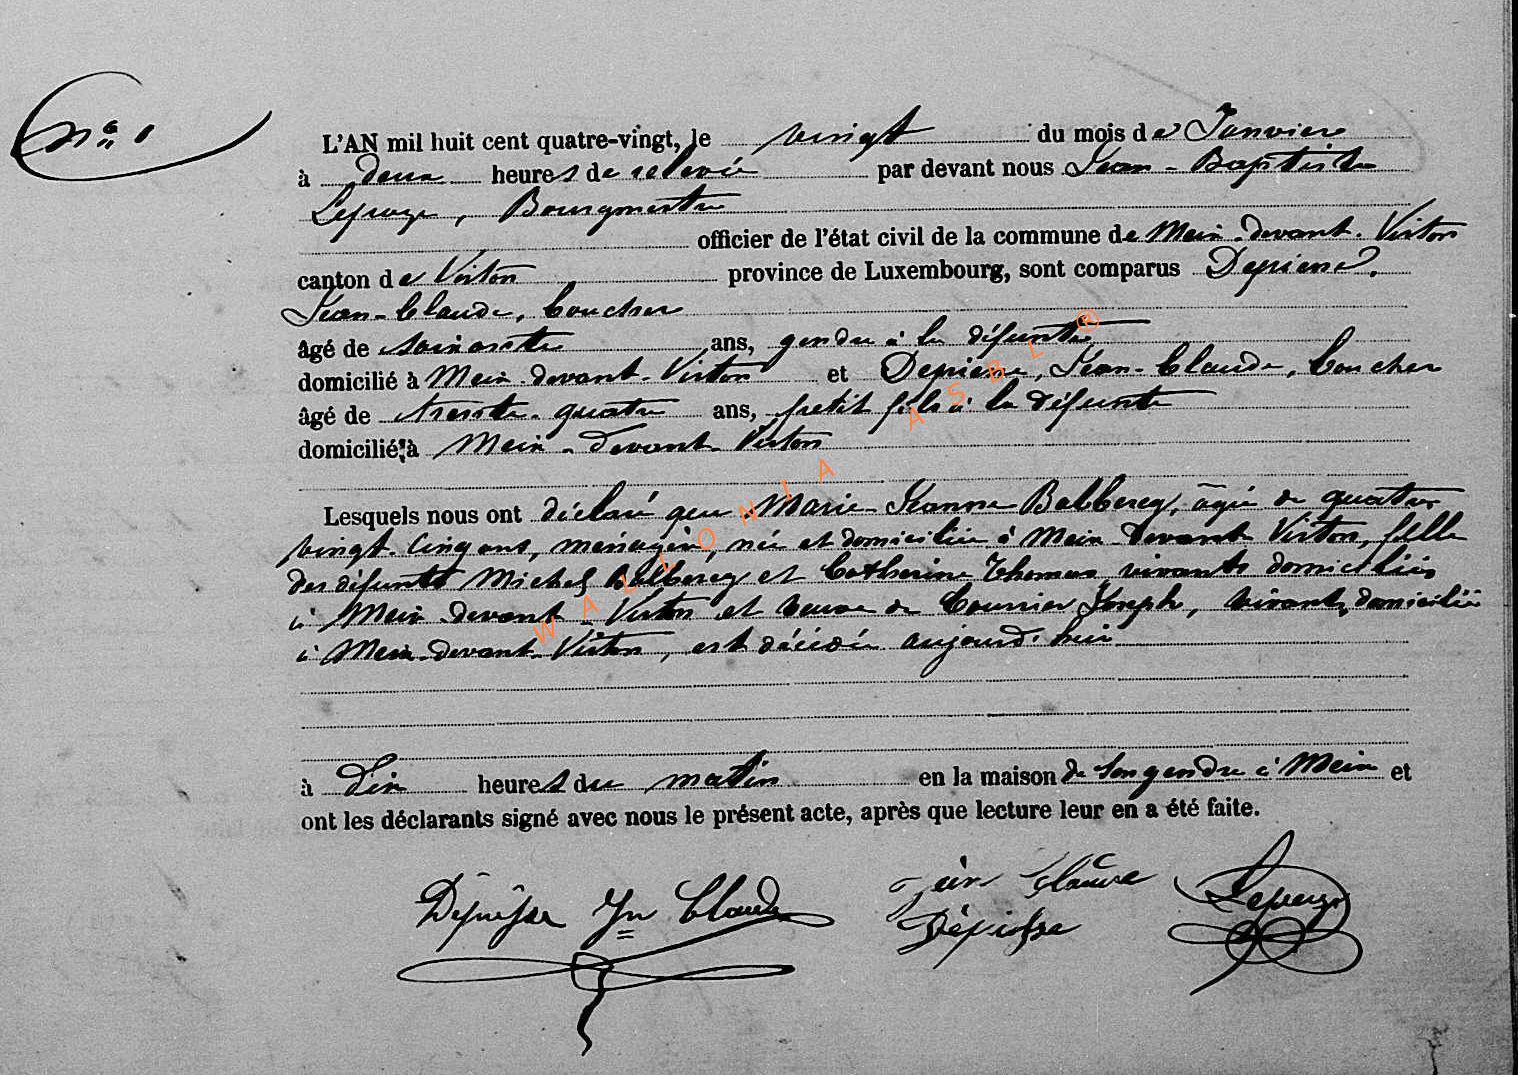 N° 1
L'AN mil huit cent quatre-vingt, le vingt du mois de Janvier
à deux heures de relevée par devant nous Jean-Baptiste
Lepage, Bourgmestre
officier de l'état civil de la commune de Meix-devant-Virton
canton de Virton province de Luxembourg, sont comparus Depiesse,
Jean-Claude, Boucher
âgé de soixante ans, gendre à la défunte
domicilié à Meix-devant-Virton et Depiesse, Jean-Claude, Boucher
âgé de trente-quatre ans, petit fils à la défunte
domicilié à Meix-devant-Virton
Lesquels nous ont déclaré que Marie Jeanne âgée de quatre
vingt-cinq ans, ménagère, née et domiciliée à Meix-devant Virton, fille
des défunts Michel et Catherine Thomas vivants domiciliés
à Meix-devant-Virton et veuve de Joseph, vivant, domicilié
à Meix-devant-Virton, est décédée aujourd'hui
à Dix heures du matin en la maison de son gendre à Meix et
ont les déclarants signé avec nous le présent acte, après que lecture leur en a été faite.
Depiesse Jn Claude
Jean Claude Lepage
Depiesse
WALLONIA ASBL ®